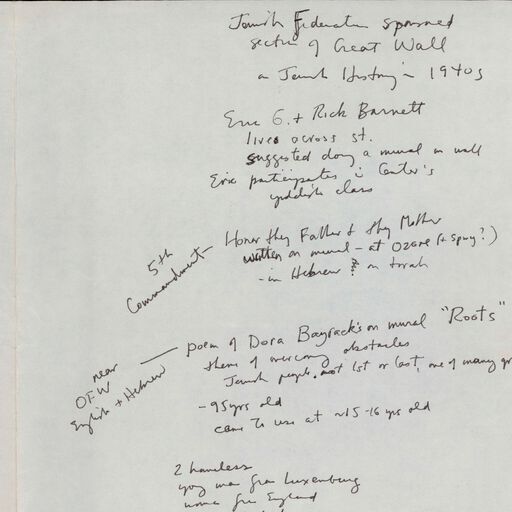 Jewish Federation sponsored
section of Great Wall
on Jewish History in 1940s
Eric G. + Rick Barnett
lives across st.
suggested doing a mural on wall
Eric participates in Center's
yiddish class
5th
Commandment
Honor thy Father + thy Mother
written on mural - at Ozone (+ spray?)
- in Hebrew ? on torah
near
OFW
English + Hebrew
poem of Dora Bayrack's on mural "Roots"
theme of overcoming obstacles
Jewish people, not 1st or last, one of many
- 95 yrs old
came to USA at ~15-16 yrs old
2 homeless
young man from Luxemburg
woman from England